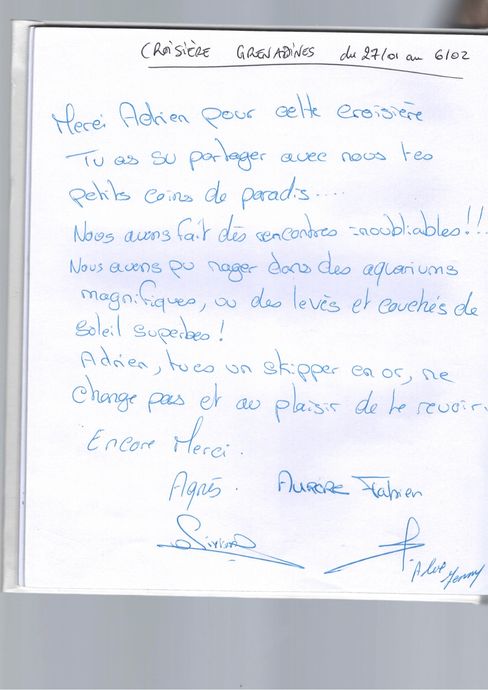 CROISIÈRE GRENADINES du 27/01 au 6/02
Merci Adrien pour cette croisière
Tu as su partager avec nous tes
petits coins de paradis....
Nous avons fait dès rencontres inoubliables!!!
Nous avons pu nager dans des aquariums
magnifiques, vu des levés et couchés de
soleil superbes!
Adrien, tu es un skipper en or, ne
change pas et au plaisir de te revoir.
Encore Merci.
Agnès. AURORE Fabien